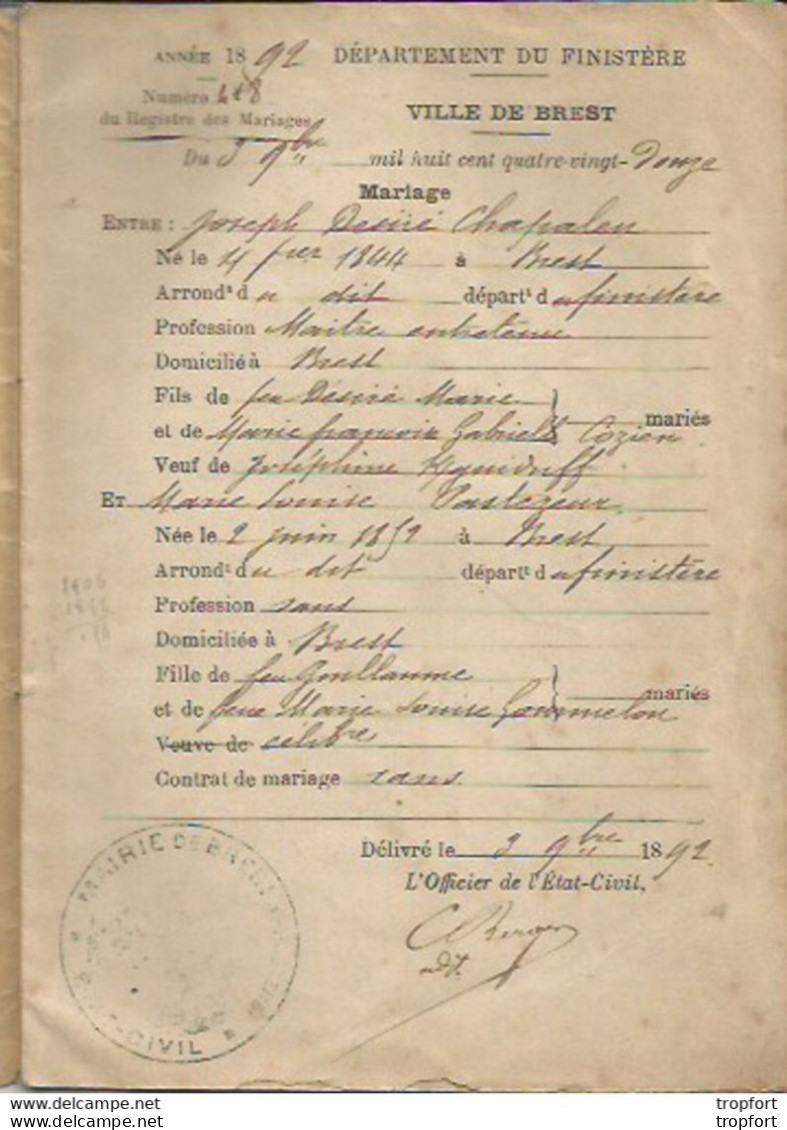 ANNÉE 1892 DÉPARTEMENT DU FINISTÈRE
Numéro 418
du Registre des Mariages
VILLE DE BREST
Du 3 9bre mil huit cent quatre-vingt-Douze
Mariage
ENTRE : Joseph Désiré Chapalen
Né le 4 fer 1844 à Brest
Arrondt du dit départt du finistère
Profession Maitre entretenu
Domicilié à Brest
Fils de feu Désiré Marie
et de Marie françoise Gabrielle Cozien mariés
Veuf de Joséphine
ET Marie Louise
Née le 2 juin 1852 à Brest
Arrondt du dit départt du finistère
Profession sans
Domiciliée à Brest
Fille de feu Goullaume
et de feue Marie Louise Gourmelon mariés
Veuve de célibre
Contrat de mariage sans
Délivré le 3 9bre 1892
L'Officier de l'État-Civil,
adjt
MAIRIE DE BREST
CIVIL
1906
1892
tropfort
tropfort
tropfort
tropfort